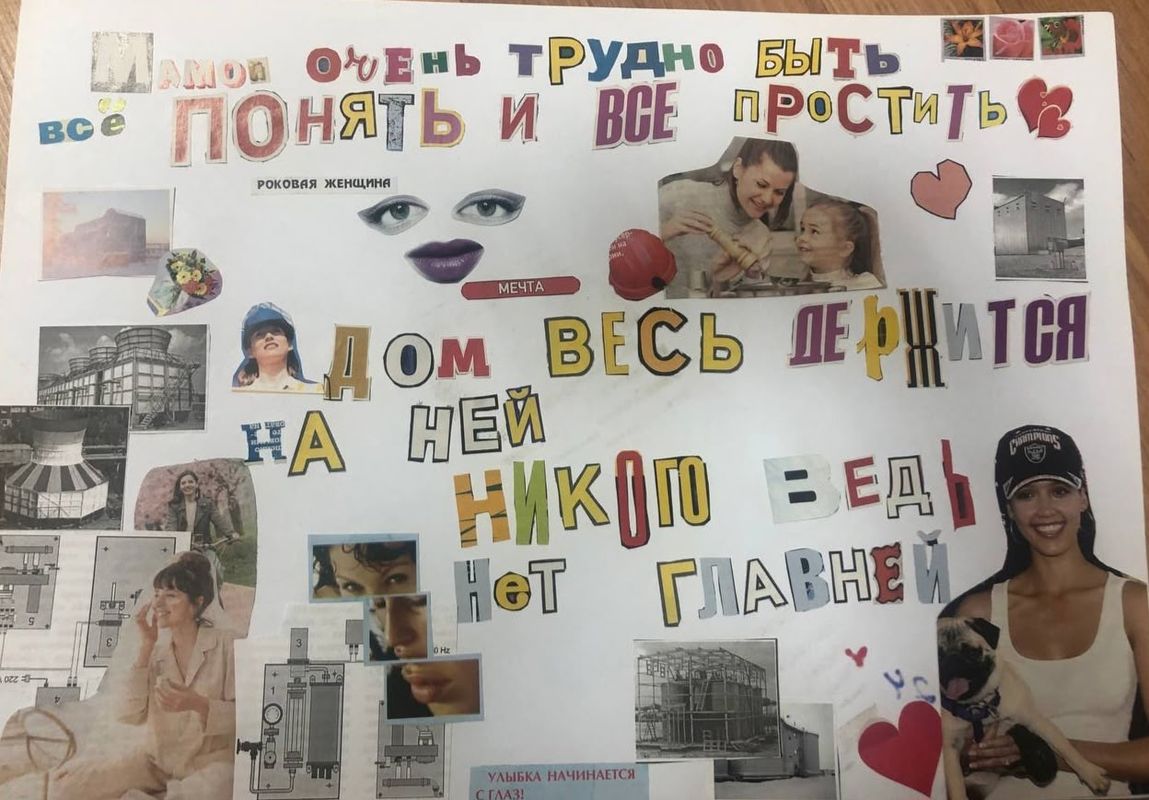 Мамой очень трудно быть
всё понять и все простить
РОКОВАЯ ЖЕНЩИНА
МЕЧТА
ДОМ ВЕСЬ ДЕРЖИТСЯ
НА НЕЙ
НИКОГО ВЕДЬ
Нет ГЛАВНЕЙ
CHAMPIONS
УЛЫБКА НАЧИНАЕТСЯ
С ГЛАЗ!
3
1
0 Hz
5
3
4
220